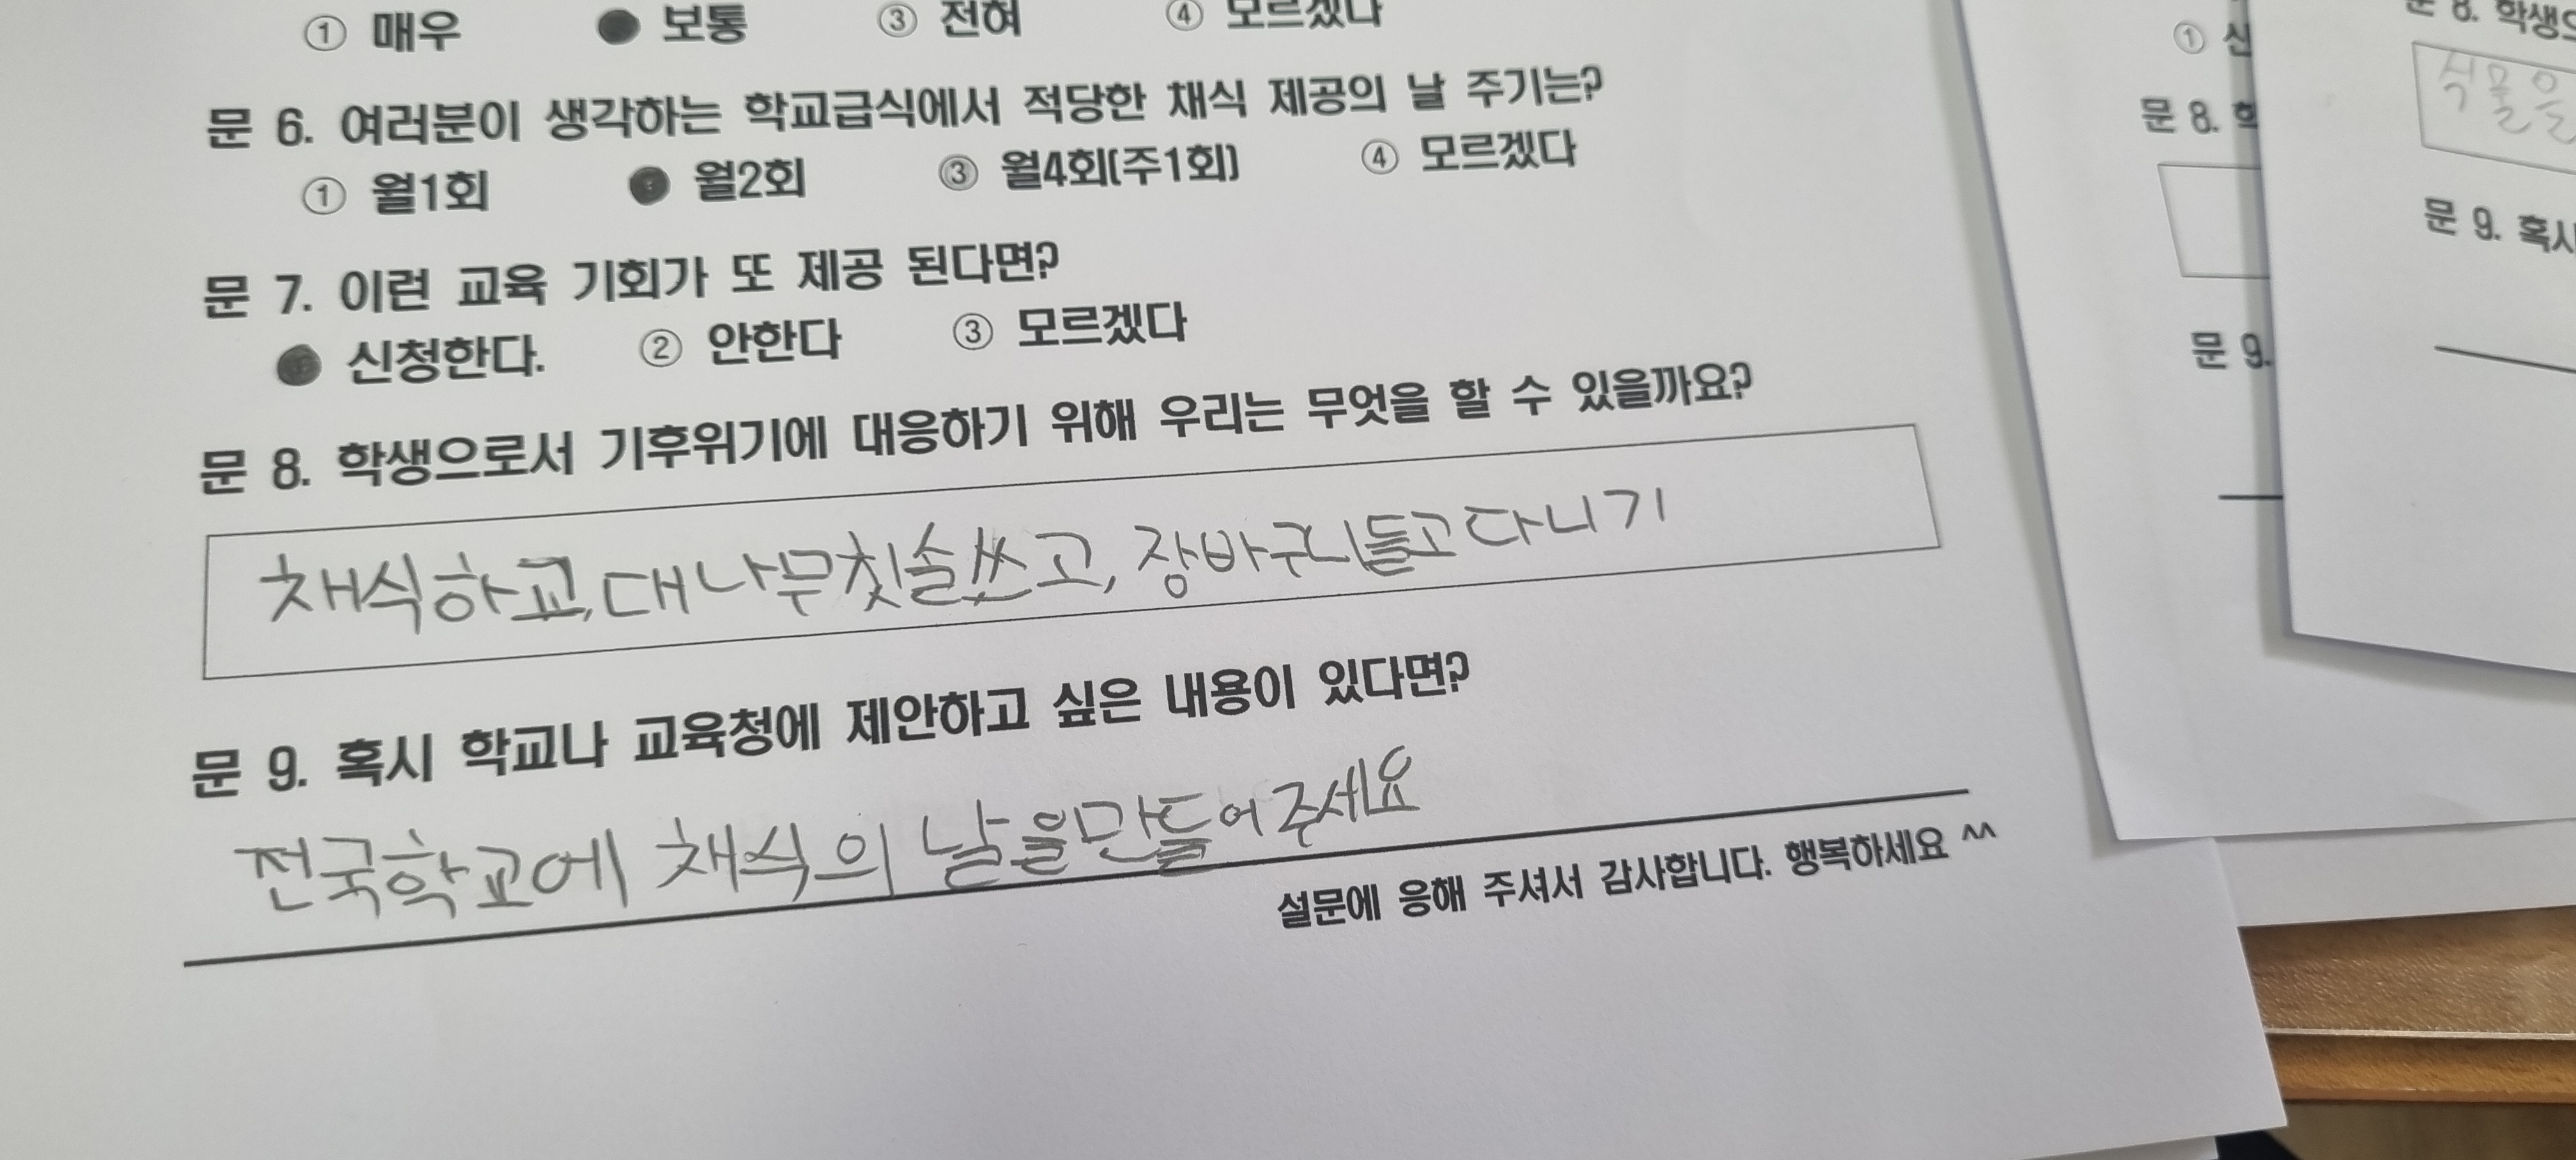 ① 매우 ● 보통 ③ 전혀 ④ 모르겠다
문 6. 여러분이 생각하는 학교급식에서 적당한 채식 제공의 날 주기는?
① 월1회 ● 월2회 ③ 월4회(주1회) ④ 모르겠다
문 7. 이런 교육 기회가 또 제공 된다면?
● 신청한다. ② 안한다 ③ 모르겠다
문 8. 학생으로서 기후위기에 대응하기 위해 우리는 무엇을 할 수 있을까요?
채식하고, 대나무칫솔쓰고, 장바구니들고다니기
문 9. 혹시 학교나 교육청에 제안하고 싶은 내용이 있다면?
전국학교에 채식의 날을만들어주세요
설문에 응해 주셔서 감사합니다. 행복하세요 ^^
① 신
문 8. 학
문 9.
문 8. 학생으
식물을
문 9. 혹시